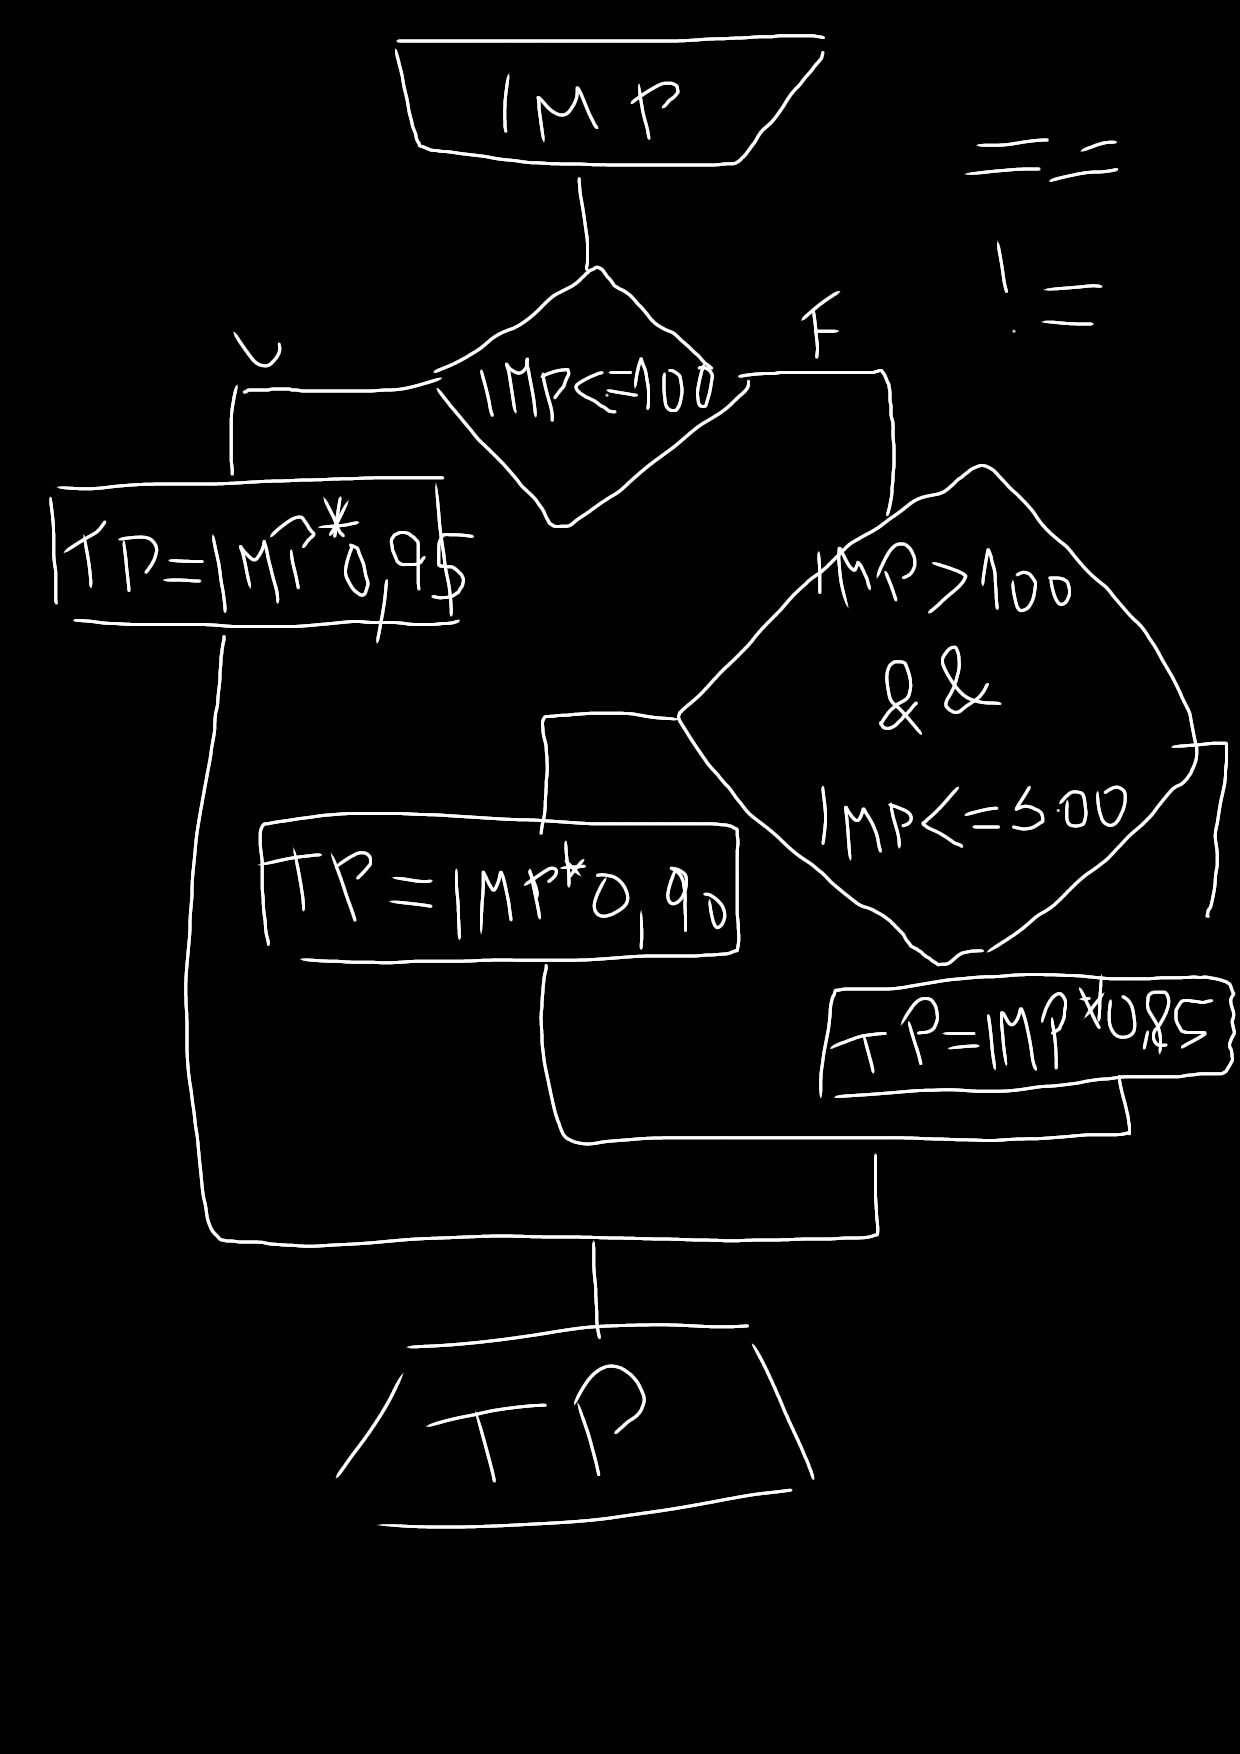 IMP
==
!=
V
F
IMP<=100
TP=IMP*0,95
IMP>100
&&
IMP<=500
TP=IMP*0,90
TP=IMP*0,85
TP